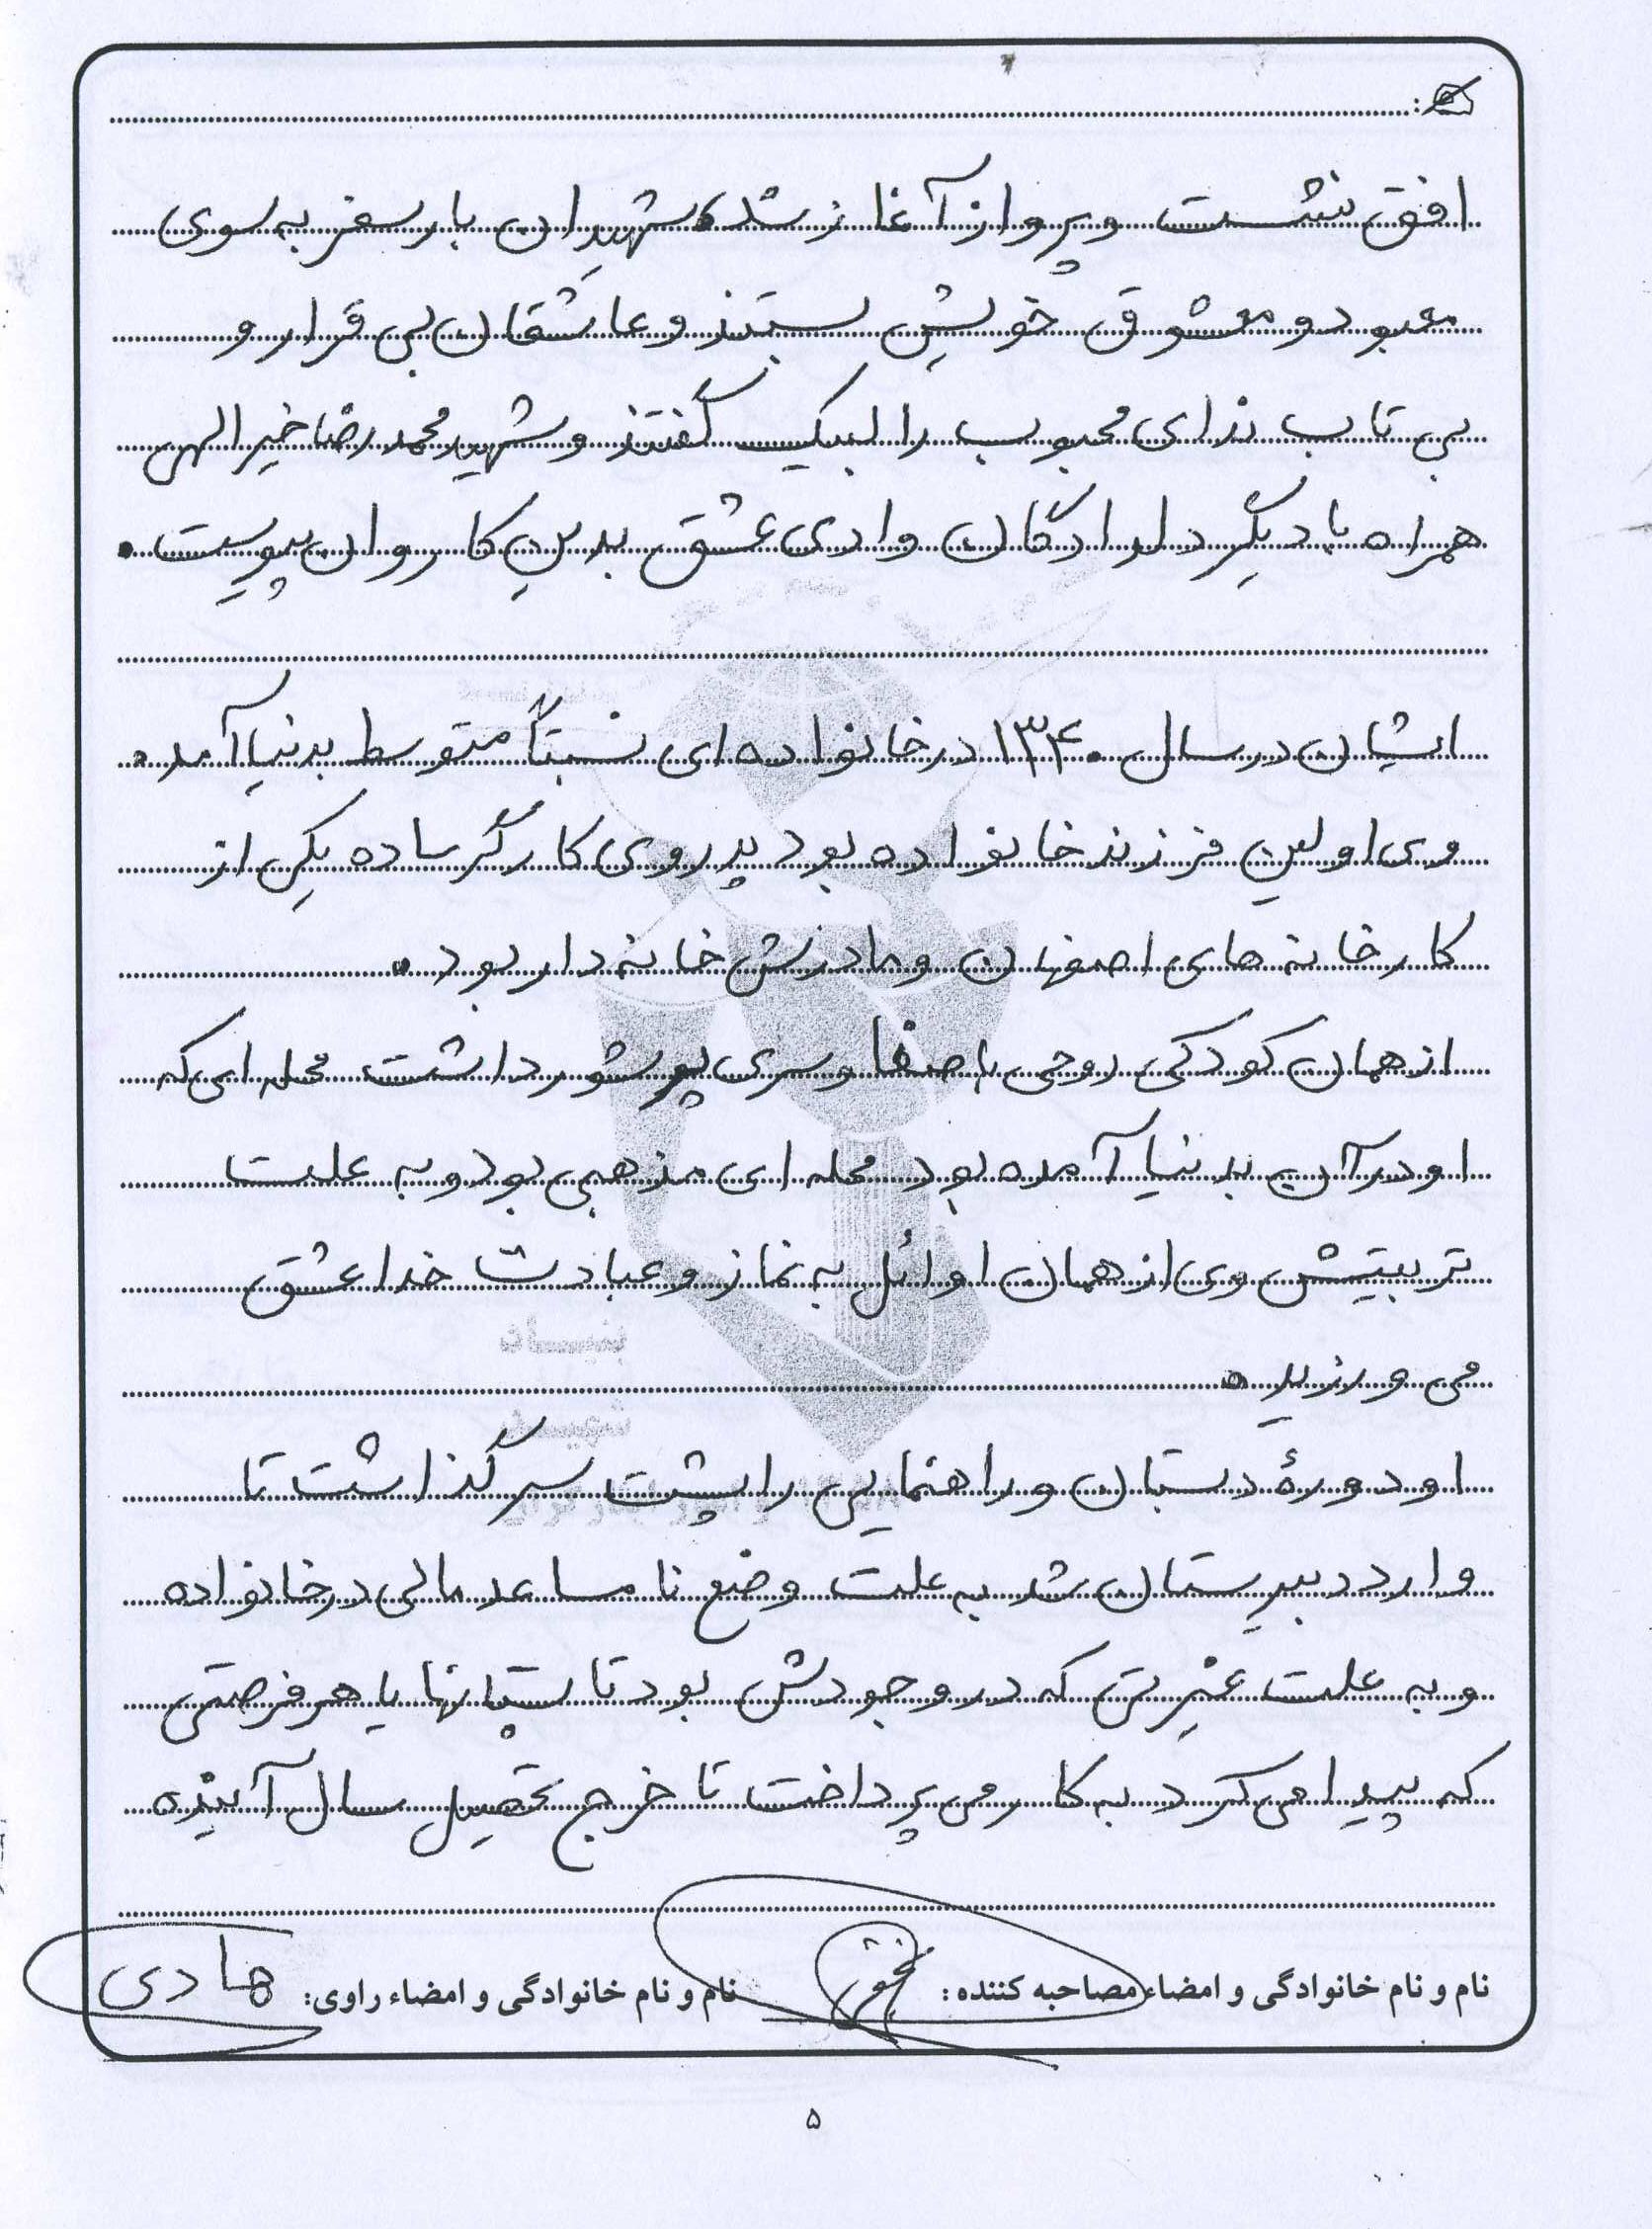 افق نشست و پرواز آغاز شد، شهیدان بار سفر به سوی
معبود و معشوق خویش بستند و عاشقان بی قرار و
بی تاب ندای محبوب را لبیک گفتند و شهید محمد رضا خیرالهی
همراه با دیگر دلدادگان وادی عشق بدین کاروان پیوست.
ایشان در سال ۱۳۴۰ در خانواده ای نسبتاً متوسط بدنیا آمد.
وی اولین فرزند خانواده بود پدر وی کارگر ساده یکی از
کارخانه های اصفهان و مادرش خانه دار بود.
از همان کودکی روحی با صفا و سری پر شور داشت محله ای که
او در آن بدنیا آمده بود محله ای مذهبی بود و به علت
تربیتش وی از همان اوائل به نماز و عبادت خدا عشق
می ورزید.
او دورۀ دبستان و راهنمایی را پشت سر گذاشت تا
وارد دبیرستان شد به علت وضع نامساعد مالی در خانواده
و به علت غیرتی که در وجودش بود تابستانها یا هر فرصتی
که پیدا می کرد به کار می پرداخت تا خرج تحصیل سال آینده
نام و نام خانوادگی و امضاء مصاحبه کننده:
نام و نام خانوادگی و امضاء راوی: هادی
۵
بنیاد
شهید